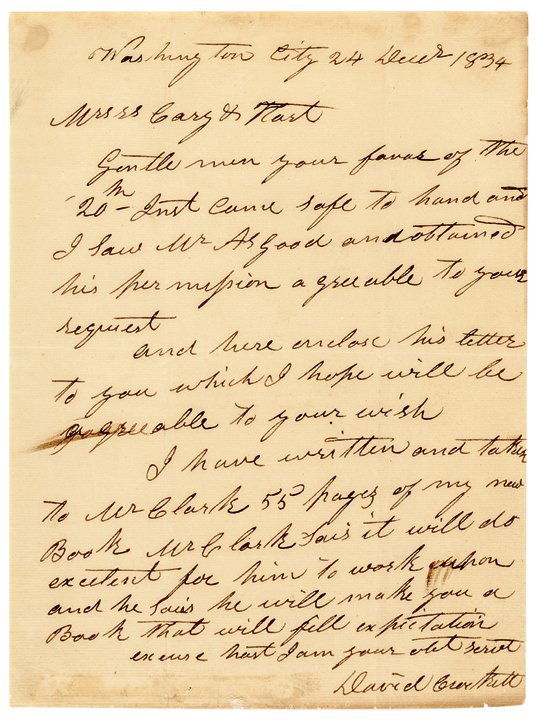 Washington City 24 Decr 1834
Mrssrs Cary & Hart
Gentle men your favor of the
20th Inst came safe to hand and
I Saw Mr Asgood and obtained
his permission a greeable to your
request
and here enclose his letter
to you which I hope will be
agreeable to your wish
I have written and taken
to Mr Clark 55 pages of my new
Book Mr Clark Sais it will do
excelent for him to work upon
and he Sais he will make you a
Book that will fill expictation
excuse hast I am your obt servt
David Crockett